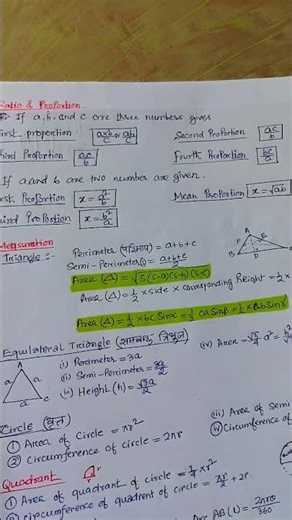 Ratio & Proportion
If a, b, and c are three numbers given
First proportion axb/c or ab/c Second Proportion ac/b
Third Proportion ac/b Fourth Proportion bc/a
If a and b are two number are given.
First Proportion x = a²/b Mean Proportion x = √ab
Third Proportion x = b²/a
Mensuration
Triangle :-
Perimeter (परिमाप) = a+b+c
Semi-Perimeter(s) = a+b+c/2
Area (Δ) = √s(s-a)(s-b)(s-c)
Area (Δ) = 1/2 × side × corresponding height = 1/2 ×
Area (Δ) = 1/2 × bc Sinα = 1/2 ca Sinβ = 1/2 × ab Sinγ
A
F E
B D
Equilateral Triangle (समबाहु त्रिभुज)
(i) Perimeter = 3a
(ii) Semi-Perimeter = 3a/2
(iii) Height (h) = √3a/2
(iv) Area = √3/4 a² =
A
a a
a
Circle (वृत्त)
① Area of Circle = πr²
② Circumference of Circle = 2πr
(iii) Area of Semi
(iv) Circumference of
Quadrant
① Area of quadrant of circle = 1/4 πr²
② Circumference of quadrant of circle = πr/2 + 2r
Arc AB (L) = 2πrθ/360